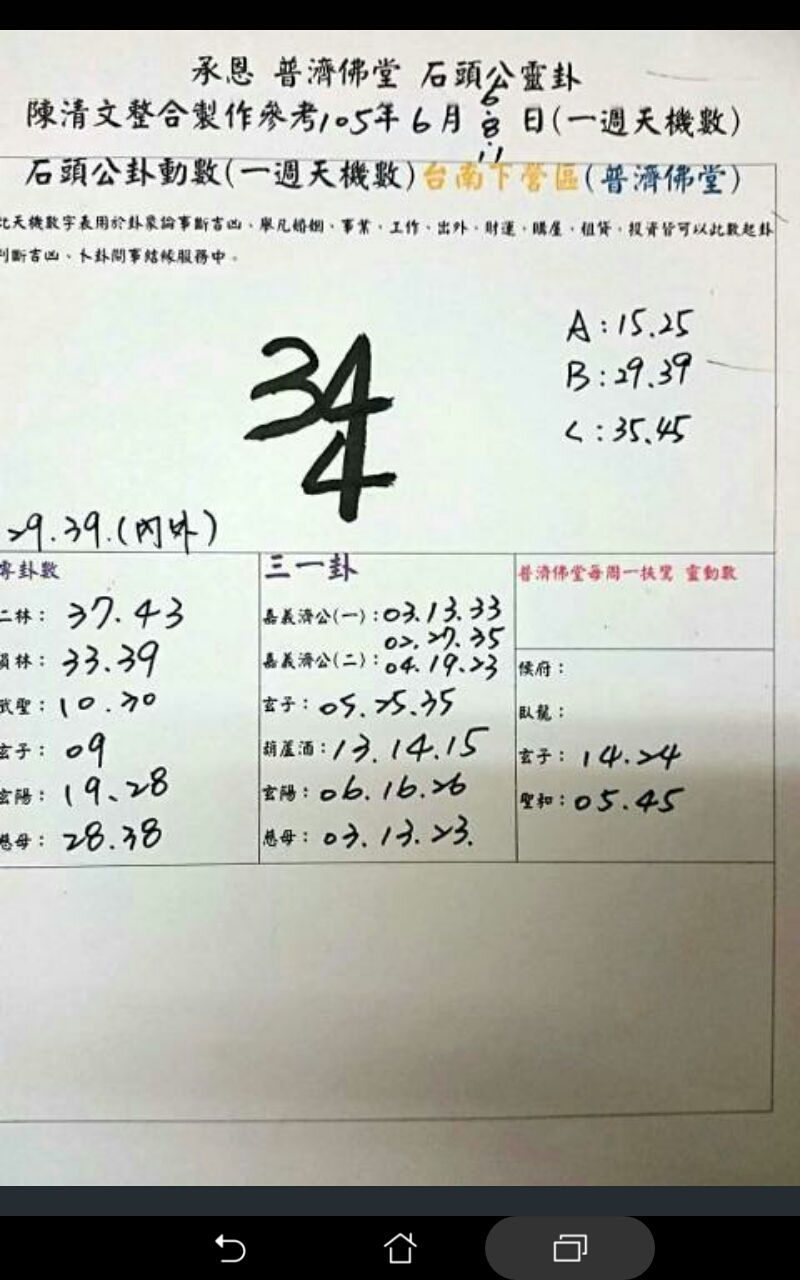 承恩 普濟佛堂 石頭公靈卦
陳清文整合製作參考105年6月6.8.11日(一週天機數)
石頭公卦動數(一週天機數)台南下營區(普濟佛堂)
此天機數字表用於卦象論事斷吉凶、舉凡婚姻、事業、工作、出外、財運、購屋、租貸、投資皆可以此數起卦
判斷吉凶、卜卦問事結緣服務中。
A:15.25
B:29.39
C:35.45
34
4
29.39.(內外)
專卦數
二林: 37.43
員林: 33.39
武聖: 10.30
玄子: 09
玄陽: 19、28
慈母: 28.38
三一卦
嘉義濟公(一):03.13.33
02.27.35
嘉義濟公(二):04.19.23
玄子:05.25.35
葫蘆酒:13.14.15
玄陽:06.16.26
慈母:03.13.23.
普濟佛堂每周一扶鸞 靈動數
候府:
臥龍:
玄子:14.24
聖和:05.45